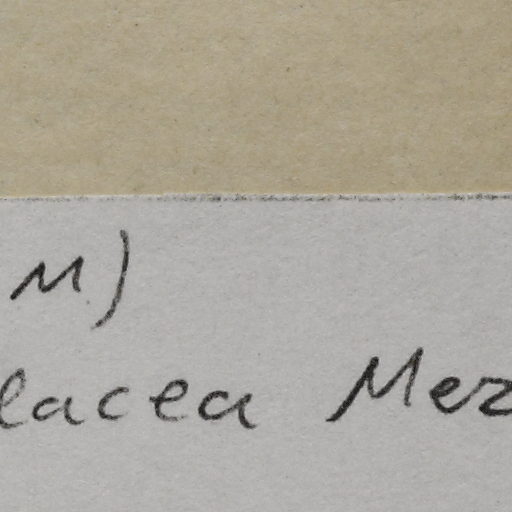 M)
lacea Mez